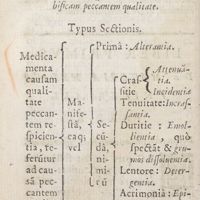 bificam peccantem qualitate.
Typus Sectionis.
Prima: Alteramia.
Medica-
menta
causam
quali-
tate
peccan-
tem re-
spicien-
tia, re-
ferūtur
ad cau-
sā
peccantem
Ma-
nife-
stā,
vel
Se-
cū-
dā:
Cras-
sitie
Attenuā-
tia.
Incidentia
Tenuitate: Incras-
santia.
Duritie: Emol-
lientia, quò
spectāt & gru-
mos dissoluentia.
Lentore: Deter-
gentia.
Acrimonia: Epi-